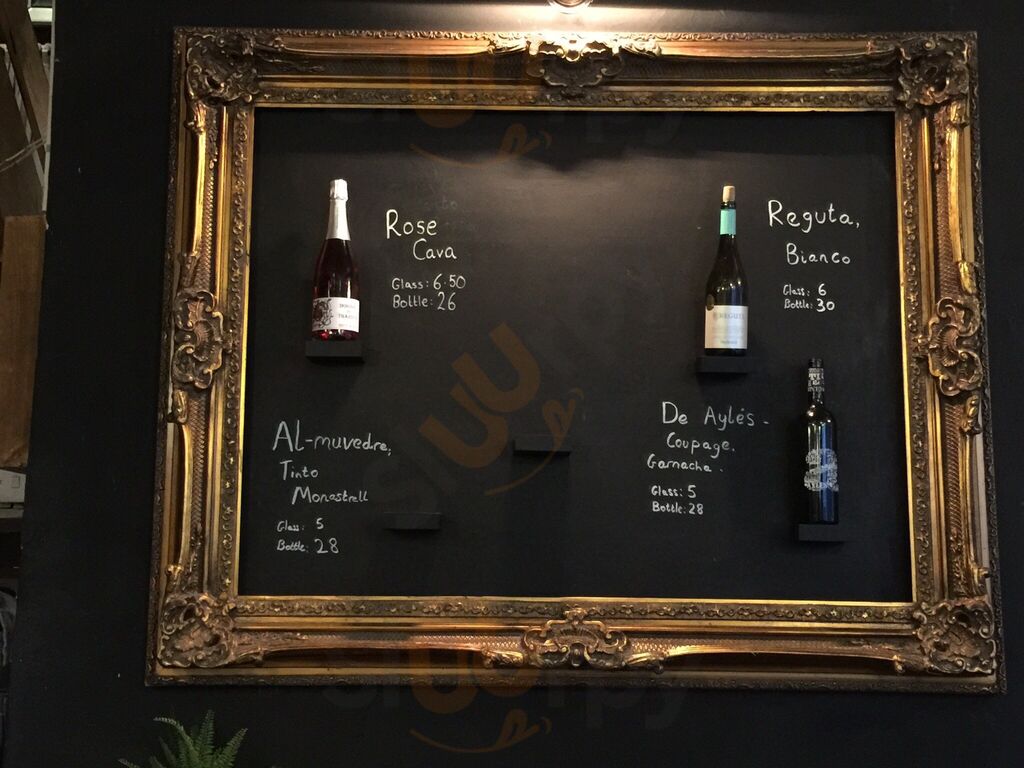 Rose
Cava
Glass: 6.50
Bottle: 26
Reguta,
Bianco
Glass: 6
Bottle: 30
AL-muvedre,
Tinto
Monastrell
Glass: 5
Bottle: 28
De Aylés -
Coupage.
Garnacha.
Glass: 5
Bottle: 28